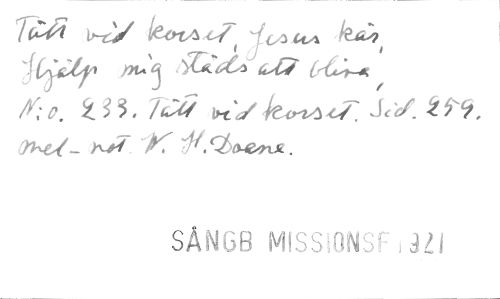 Tätt vid korset, Jesus kär,
Hjälp mig städs att bliva,
N:o. 233. Tätt vid korset. Sid. 259.
mel-not. W. H. Doane.
SÅNGB MISSIONSF 1921